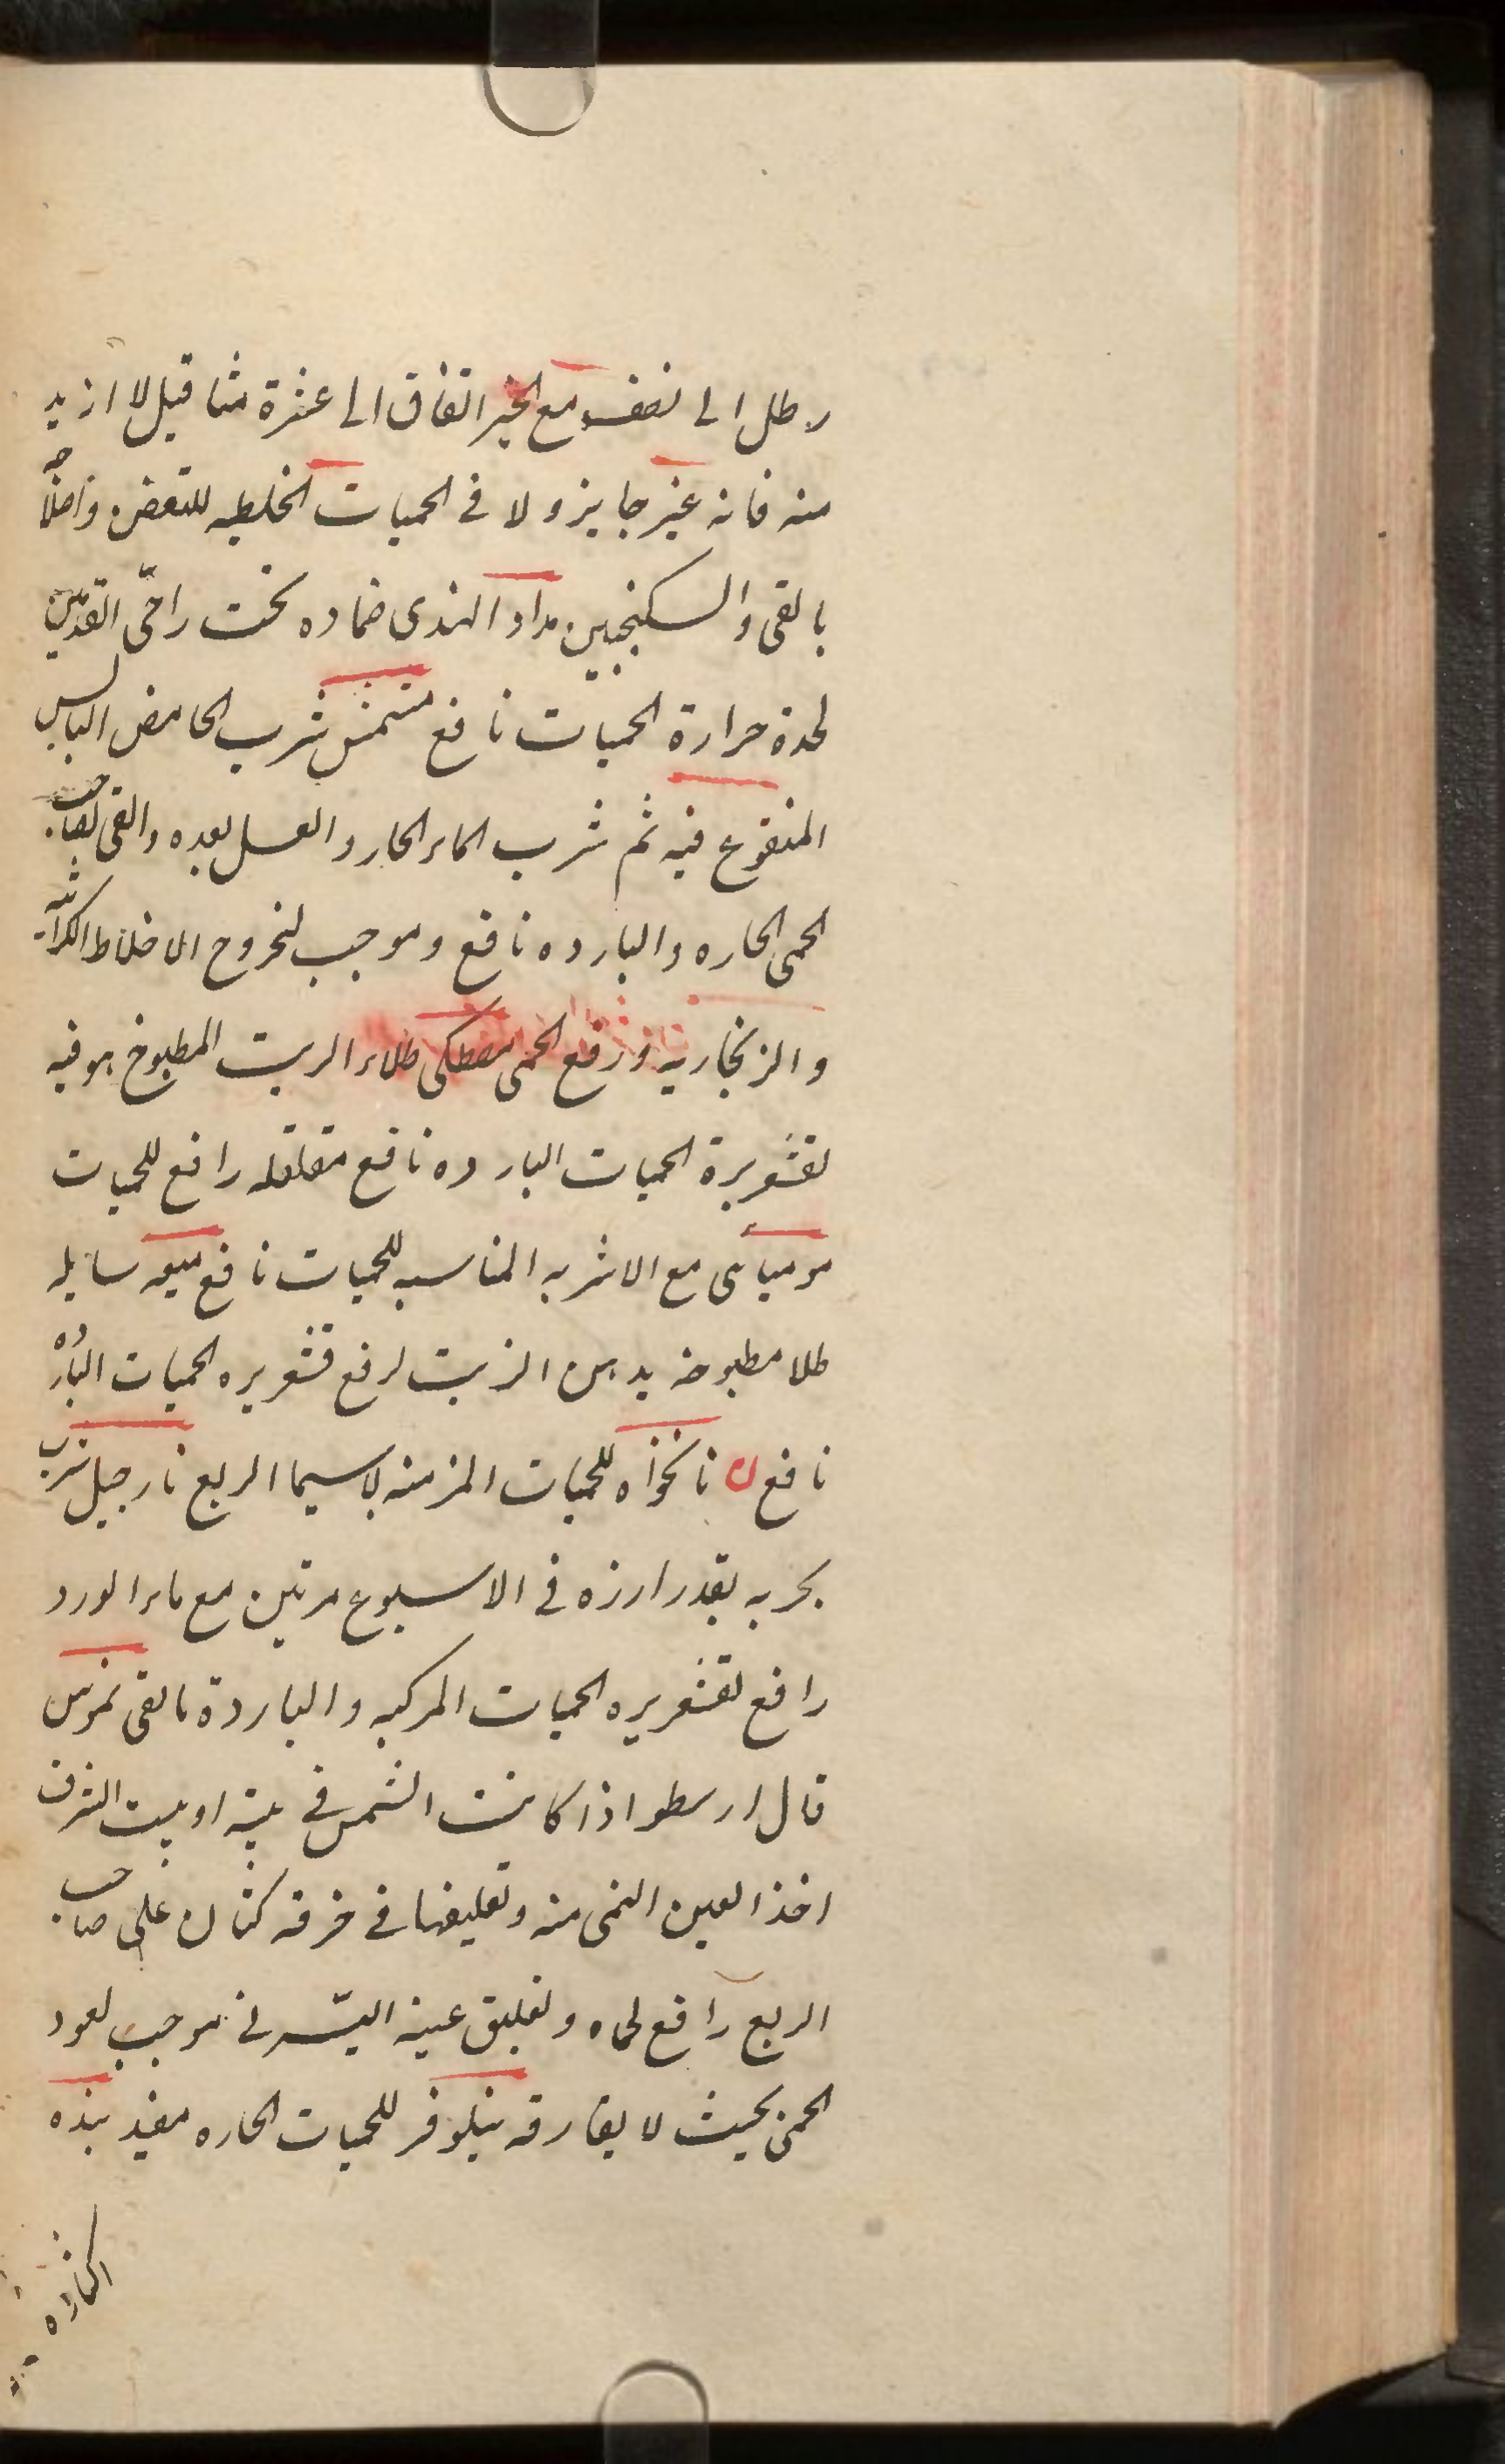 رطل الى نصف مع الخبز اتفاق الى عشرة مثاقيل لا ازيد
منه فانه غير جايز ولا فى الحميات الخلطيه للتعفن
بالقى والسكنجبين مداد الهندى ضماده تحت راحتى القدمين
لحدة حرارة الحميات نافع مشمش شرب الحامض اليابس
المنقوع فيه ثم شرب الماء الحار والعسل بعده والقى لصاحب
الحمى الحاره والبارده نافع وموجب لخروج الاخلاط الكراثيه
والزنجاريه ورفع الحمى مصطكى طلاء الزيت المطبوخ هو فيه
لقشعريرة الحميات البارده نافع مقلقله رافع للحميات
موميائى مع الاشربه المناسبه للحميات نافع ميعه سايله
طلا مطبوخه بدهن الزيت لرفع قشعريره الحميات البارده
نافع ن نانخواه للحميات المزمنه لاسيما الربع نارجيل شرب
بحريه بقدر ارزه فى الاسبوع مرتين مع ماء الورد
رافع لقشعريره الحميات المركبه والباردة بالقى نمرس
قال ارسطو اذا كانت الشمس فى بيته او بيت الشرف
اخذ العين اليمنى منه وتعليقها فى خرقه كتان على صاحب
الربع رافع لحماه وتعليق عينه اليسرى موجب لعود
الحمى بحيث لا يفارقه نيلوفر للحميات الحاره مفيد هذه
الحاده